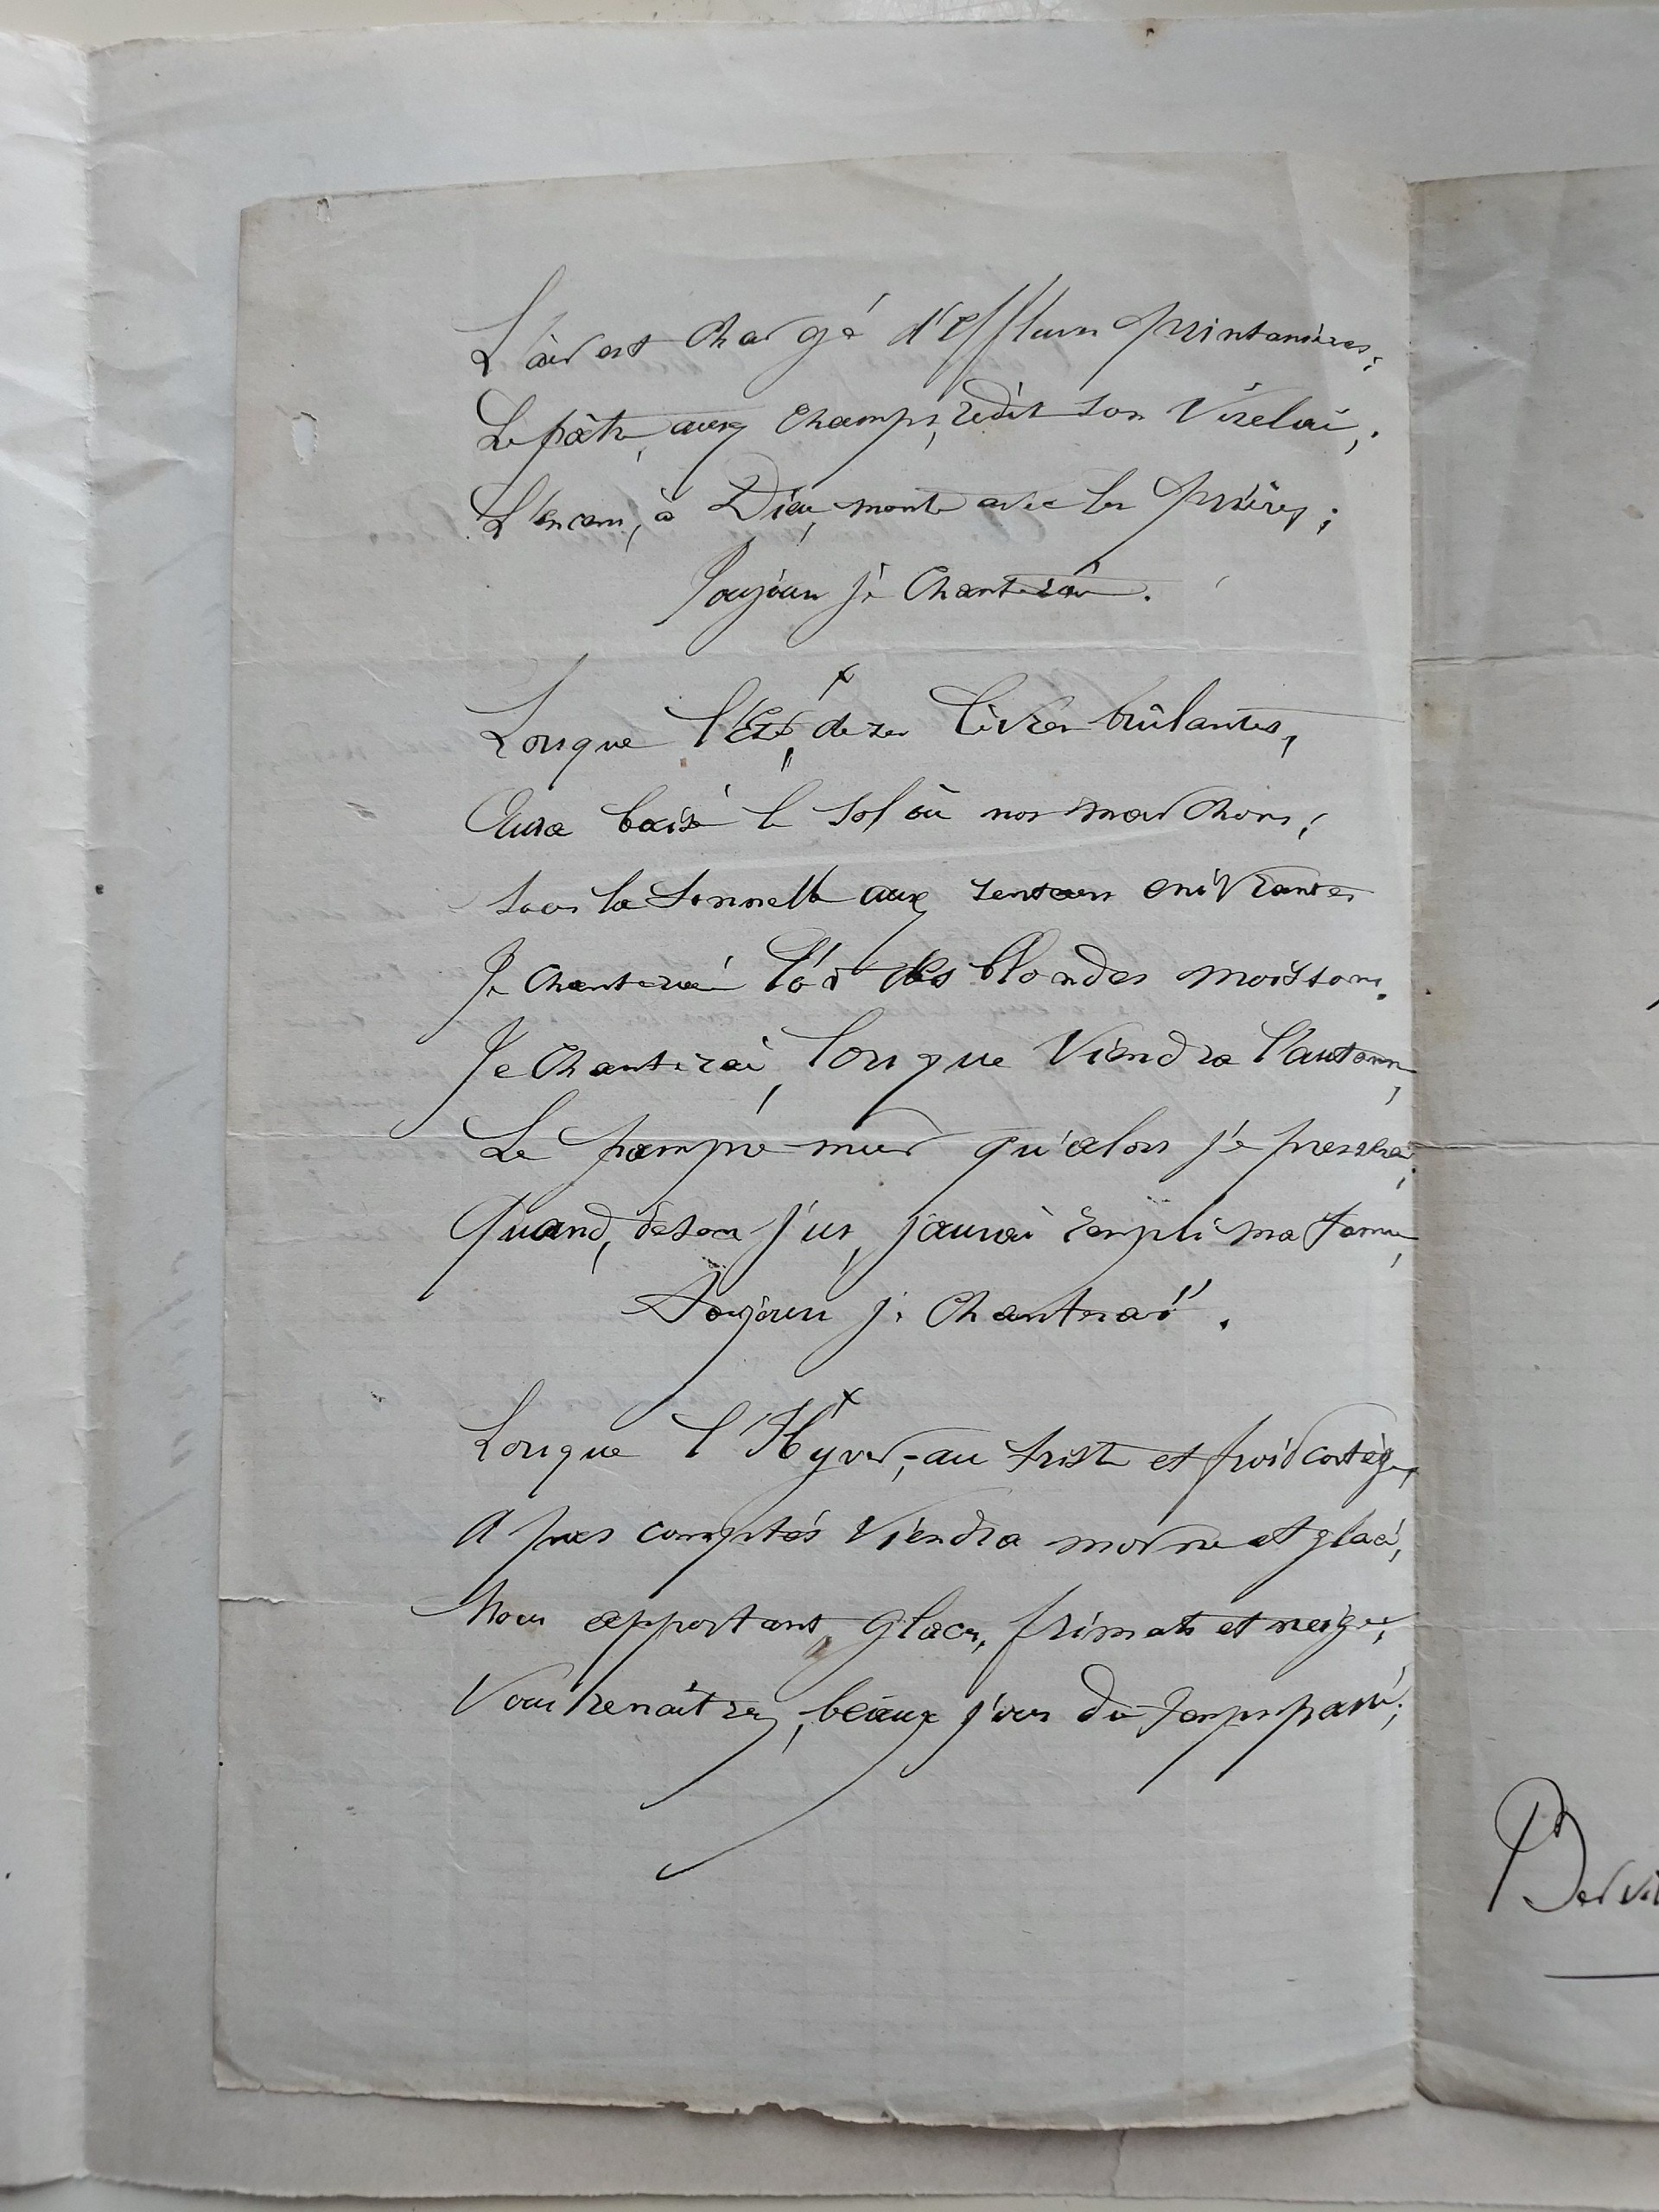 L'air est chargé d'effluves printanières;
Le pâtre, aux champs, redit son virelai;
L'encens, à Dieu, monte avec les prières;
Toujours je chanterai.
x
Lorsque l'Eté, de ses lèvres brûlantes,
Aura baisé le sol où nos marchons;
Sous la tonnelle aux senteurs enivrantes
Je chanterai l'or des blondes moissons.
Je chanterai, lorsque viendra l'automne,
Le pampre mur qu'alors je presserai;
Quand, de son jus, j'aurai rempli ma tonne,
Toujours je chanterai.
x
Lorsque l'Hyver, au triste et froid cortège,
A pas comptés viendra morne et glacé,
Nous apportant glaces, frimats et neige;
Vous renaîtrez, beaux jours du temps passé;